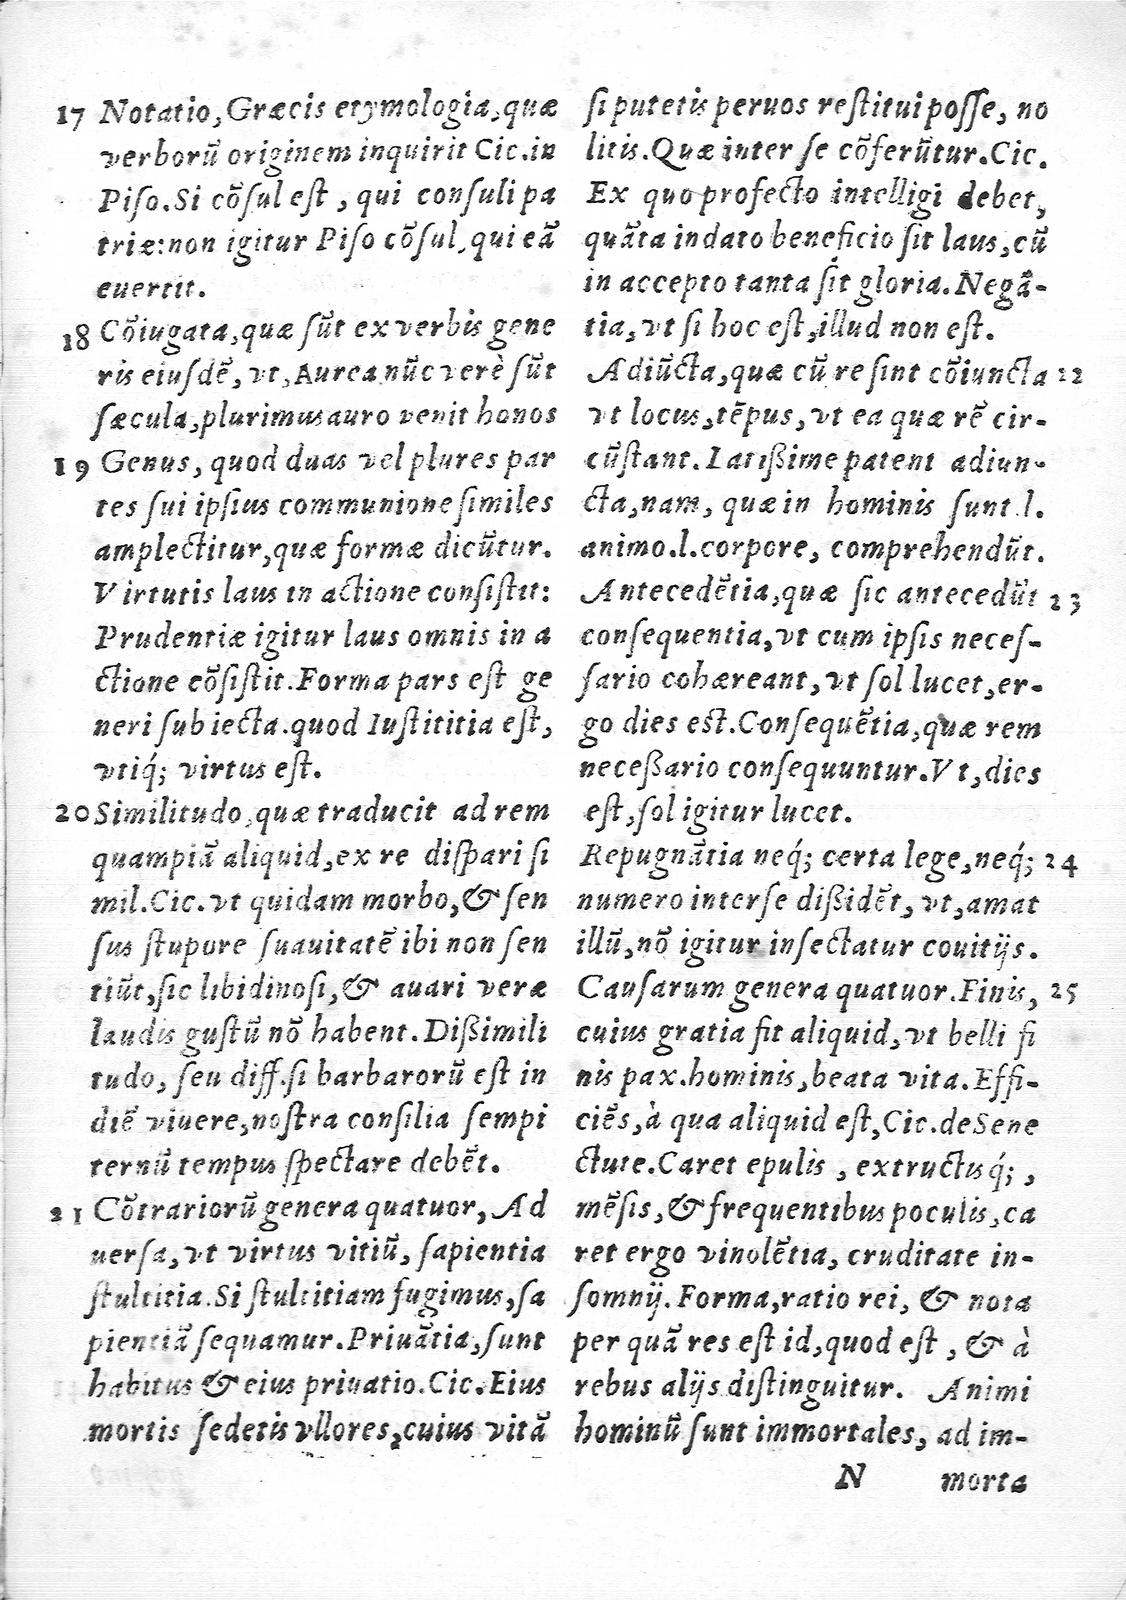 17 Notatio, Græcis etymologia, quæ
verborũ originem inquirit Cic. in
Piso. Si cõsul est, qui consuli pa
triæ: non igitur Piso cõsul, qui eã
euertit.
18 Cõiugata, quæ sũt ex verbis gene
ris eiusdẽ, vt, Aurea nũc verè sũt
sæcula, plurimus auro venit honos
19 Genus, quod duas vel plures par
tes sui ipsius communione similes
amplectitur, quæ formæ dicũtur.
Virtutis laus in actione consistit:
Prudentiæ igitur laus omnis in a
ctione cõsistit. Forma pars est ge
neri subiecta. quod Iustititia est,
vtiq́; virtus est.
20 Similitudo, quæ traducit ad rem
quampiã aliquid, ex re dispari si
mil. Cic. vt quidam morbo, & sen
sus stupore suauitatẽ ibi non sen
tiũt, sic libidinosi, & auari veræ
laudis gustũ nõ habent. Dißimili
tudo, seu diff. si barbarorũ est in
diẽ viuere, nostra consilia sempi
ternũ tempus spectare debẽt.
21 Cõtrariorũ genera quatuor, Ad
uersa, vt virtus vitiũ, sapientia
stultitia. Si stultitiam fugimus, sa
pientiã sequamur. Priuãtia, sunt
habitus & eius priuatio. Cic. Eius
mortis sedetis vllores, cuius vitã
si putetis per uos restitui posse, no
litis. Quæ inter se cõferũtur. Cic.
Ex quo profecto intelligi debet,
quãta in dato beneficio sit laus, cũ
in accepto tanta sit gloria. Negã-
tia, vt si hoc est, illud non est.
Adiũcta, quæ cũ re sint cõiuncta 22
vt locus, tẽpus, vt ea quæ rẽ cir-
cũstant. Latißime patent adiun-
cta, nam, quæ in hominis sunt .l.
animo .l. corpore, comprehendũt.
Antecedẽtia, quæ sic antecedũt 23
consequentia, vt cum ipsis neces-
sario cohæreant, vt sol lucet, er-
go dies est. Consequẽtia, quæ rem
neceßario consequuntur. Vt, dies
est, sol igitur lucet.
Repugnãtia neq́; certa lege, neq́; 24
numero inter se dißidẽt, vt, amat
illũ, nõ igitur insectatur couitijs.
Causarum genera quatuor. Finis, 25
cuius gratia fit aliquid, vt belli fi
nis pax. hominis, beata vita. Effi-
ciẽs, à qua aliquid est, Cic. de Sene
ctute. Caret epulis, extructisq́;,
mẽsis, & frequentibus poculis, ca
ret ergo vinolẽtia, cruditate in-
somnij. Forma, ratio rei, & nota
per quã res est id, quod est, & à
rebus alijs distinguitur. Animi
hominũ sunt immortales, ad im-
N morta